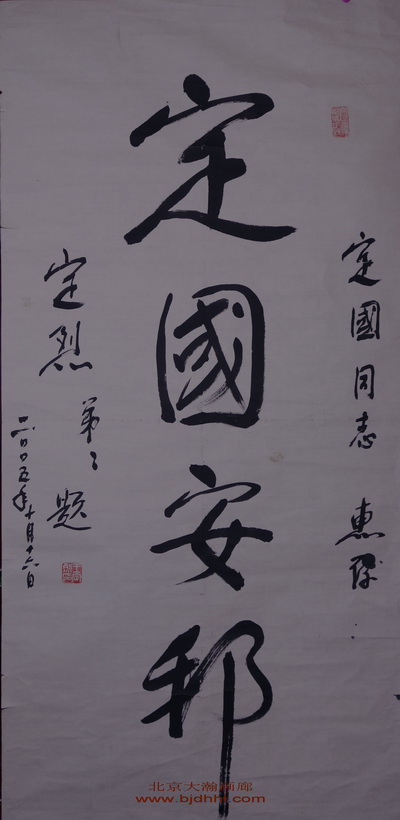 定國同志 惠存
定國安邦
定烈
弟弟 题
二〇〇五年十月十六日
北京大瀚画廊
www.bjdhhl.com